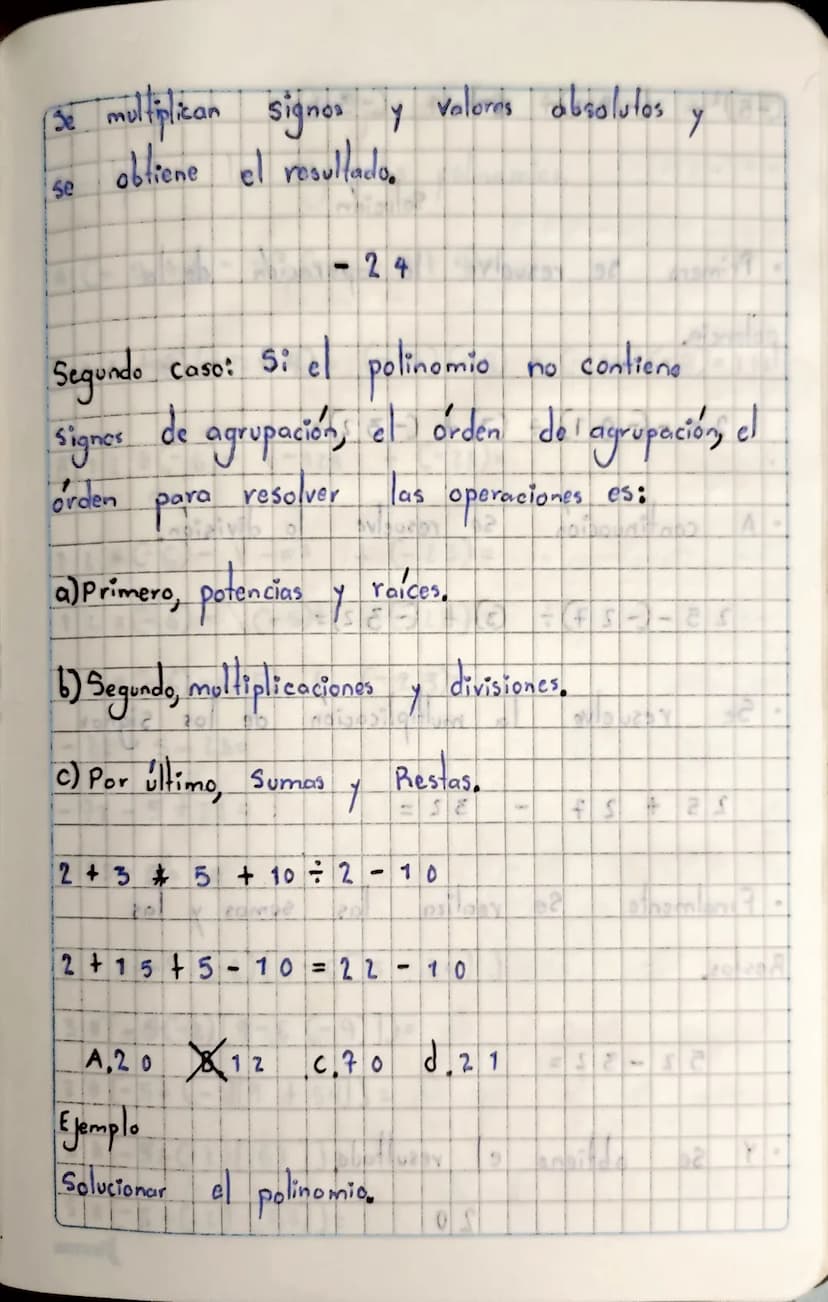 Se multiplican signos y valores absolutos y
se obtiene el resultado.
- 24
Segundo caso: Si el polinomio no contiene
signos de agrupación, el órden de agrupación, el
órden para resolver las operaciones es:
a) Primero, potencias y raíces.
b) Segundo, multiplicaciones y divisiones.
c) Por último, Sumas y Restas.
2 + 3 * 5 + 10 ÷ 2 - 10
2 + 15 + 5 - 10 = 22 - 10
A. 20 B 12 C. 70 d. 21
Ejemplo
Solucionar el polinomio.